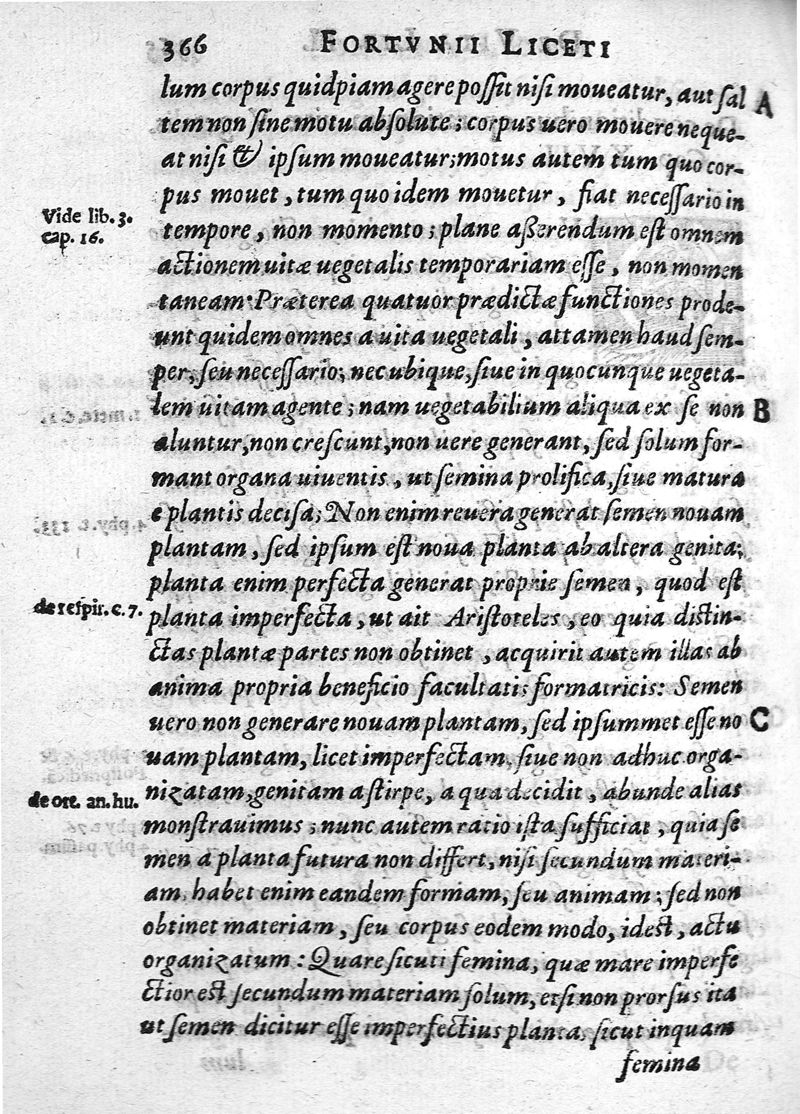 366 FORTVNII LICETI
lum corpus quidpiam agere possit nisi moueatur, aut sal
A
tem non sine motu absolute; corpus uero mouere neque-
at nisi & ipsum moueatur; motus autem tum quo cor-
pus mouet, tum quo idem mouetur, fiat necessario in
Vide lib. 3.
cap. 16.
tempore, non momento; plane asserendum est omnem
actionem uitæ uegetalis temporariam esse, non momen
taneam. Præterea quatuor prædictæ functiones prode-
unt quidem omnes a uita uegetali, attamen haud sem-
per, seu necessario; nec ubique, siue in quocunque uegeta-
lem uitam agente; nam uegetabilium aliqua ex se non
B
aluntur, non crescunt, non uere generant, sed solum for-
mant organa uiuentis, ut semina prolifica, siue matura
e plantis decisa; Non enim reuera generat semen nouam
plantam, sed ipsum est noua planta ab altera genita;
planta enim perfecta generat proprie semen, quod est
de respir. c. 7.
planta imperfecta, ut ait Aristoteles, eo quia distin-
ctas plantæ partes non obtinet, acquirit autem illas ab
anima propria beneficio facultatis formatricis: Semen
uero non generare nouam plantam, sed ipsummet esse no
C
uam plantam, licet imperfectam, siue non adhuc orga-
nizatam, genitam a stirpe, a qua decidit, abunde alias
de ort. an. hu.
monstrauimus; nunc autem ratio ista sufficiat, quia se
men a planta futura non differt, nisi secundum materi-
am, habet enim eandem formam, seu animam; sed non
obtinet materiam, seu corpus eodem modo, idest, actu
organizatum: Quare sicuti femina, quæ mare imperfe
ctior est secundum materiam solum, etsi non prorsus ita
ut semen dicitur esse imperfectius planta, sicut inquam
femina